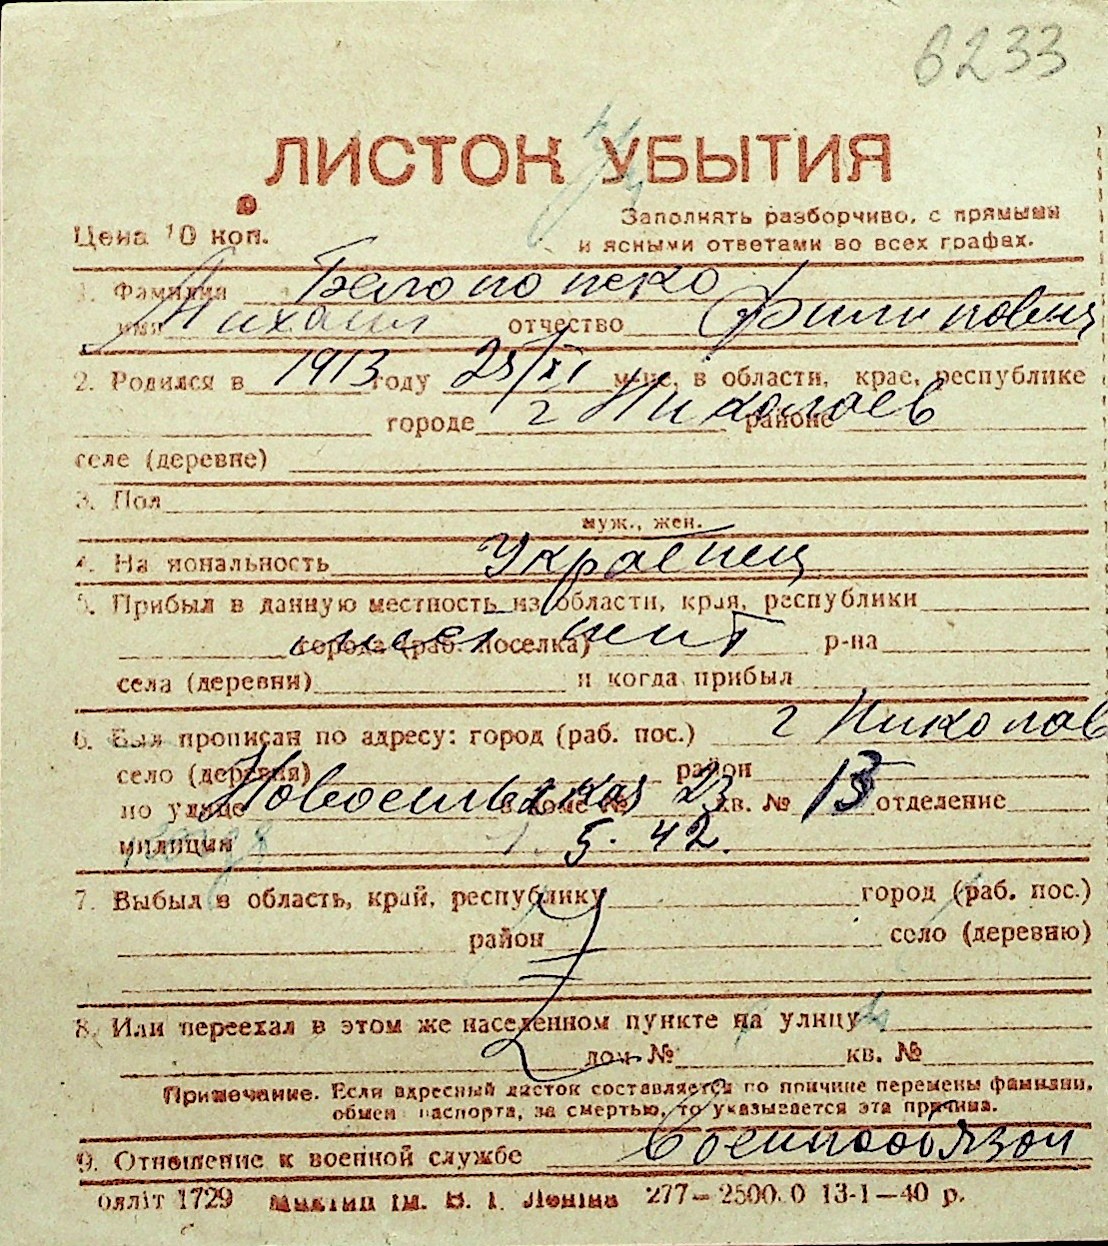 6233
ЛИСТОК УБЫТИЯ
Цена 10 коп.
Заполнять разборчиво, с прямыми
и ясными ответами во всех графах.
1. Фамилия Белопопско
имя Михаил отчество Филиповиц
2. Родился в 1913 году 25/XI м-це, в области, крае, республике
городе г Николаев районе
селе (деревне)
3. Пол
муж., жен.
4. На иональность Украенец
5. Прибыл в данную местность из области, края, республики
города (раб. поселка) жит р-на
села (деревни) и когда прибыл
6. Был прописан по адресу: город (раб. пос.) г Николаев
село (деревня) район
по улице Новосильская в доме № 23 кв. № 13 отделение
милиции 1. 5. 42.
7. Выбыл в область, край, республику город (раб. пос.)
район село (деревню)
8. Или переехал в этом же населенном пункте на улицу
дом № кв. №
Примечание. Если адресный листок составляется по причине перемены фамилии,
обмен паспорта, за смертью, то указывается эта причина.
9. Отношение к военной службе Военнообязан
оялліт 1729 Миктип ім. В. І. Леніна 277—2500.0 13-1—40 р.